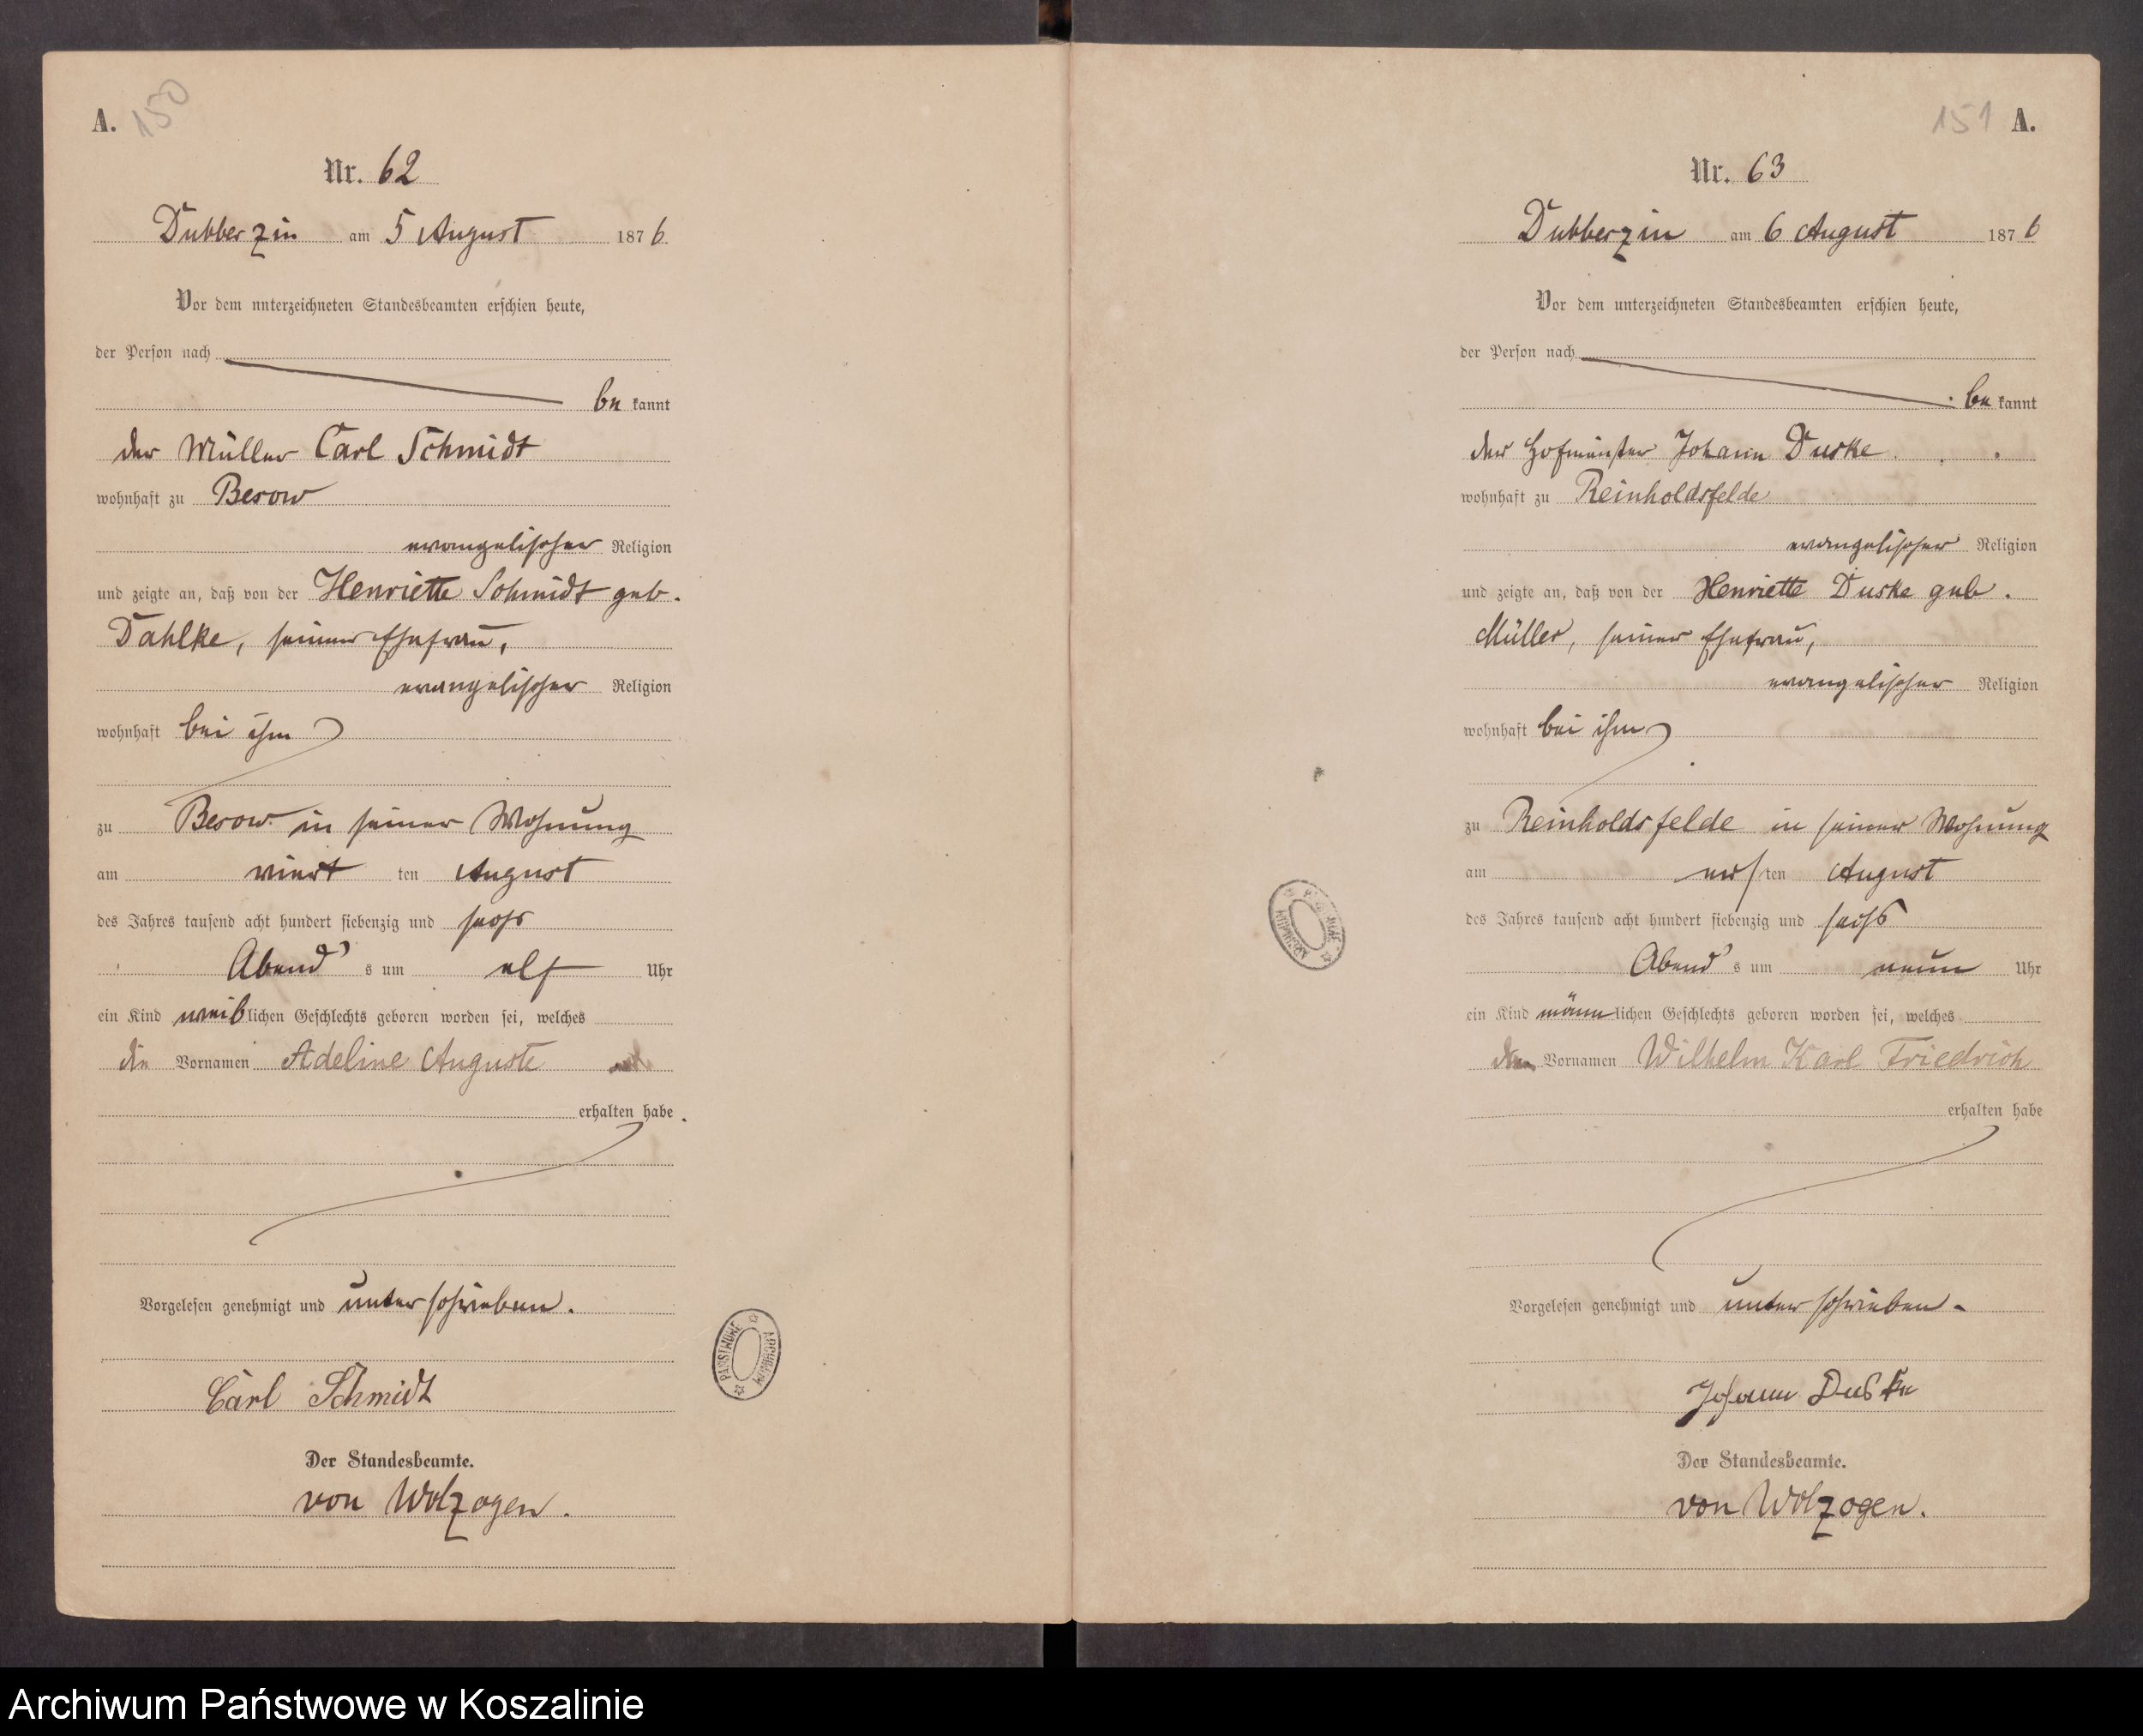 A. 150
Nr. 62
Dubberzin am 5 August 1876.
Vor dem unterzeichneten Standesbeamten erschien heute,
der Person nach
be kannt
der Müller Carl Schmidt
wohnhaft zu Besow
evangelischer Religion
und zeigte an, daß von der Henriette Schmidt geb.
Dahlke, seiner Ehefrau,
evangelischer Religion
wohnhaft bei ihm
zu Besow in seiner Wohnung
am viert ten August
des Jahres tausend acht hundert siebenzig und sechs
Abend s um elf Uhr
ein Kind weiblichen Geschlechts geboren worden sei, welches
die Vornamen Adeline Auguste
erhalten habe.
Vorgelesen genehmigt und unterschrieben.
Carl Schmidt
Der Standesbeamte.
von Wolzogen.
PAŃSTWOWE ARCHIWUM
151 A.
Nr. 63
Dubberzin am 6 August 1876
Vor dem unterzeichneten Standesbeamten erschien heute,
der Person nach
be kannt
der Hofmeister Johann Duske
wohnhaft zu Reinholdsfelde
evangelischer Religion
und zeigte an, daß von der Henriette Duske geb.
Müller, seiner Ehefrau,
evangelischer Religion
wohnhaft bei ihm
zu Reinholdsfelde in seiner Wohnung
am ersten August
des Jahres tausend acht hundert siebenzig und sechs
Abend s um neun Uhr
ein Kind männlichen Geschlechts geboren worden sei, welches
Vornamen Wilhelm Karl Friedrich
erhalten habe
Vorgelesen genehmigt und unterschrieben.
Johann Duske
Der Standesbeamte.
von Wolzogen.
Archiwum Państwowe w Koszalinie